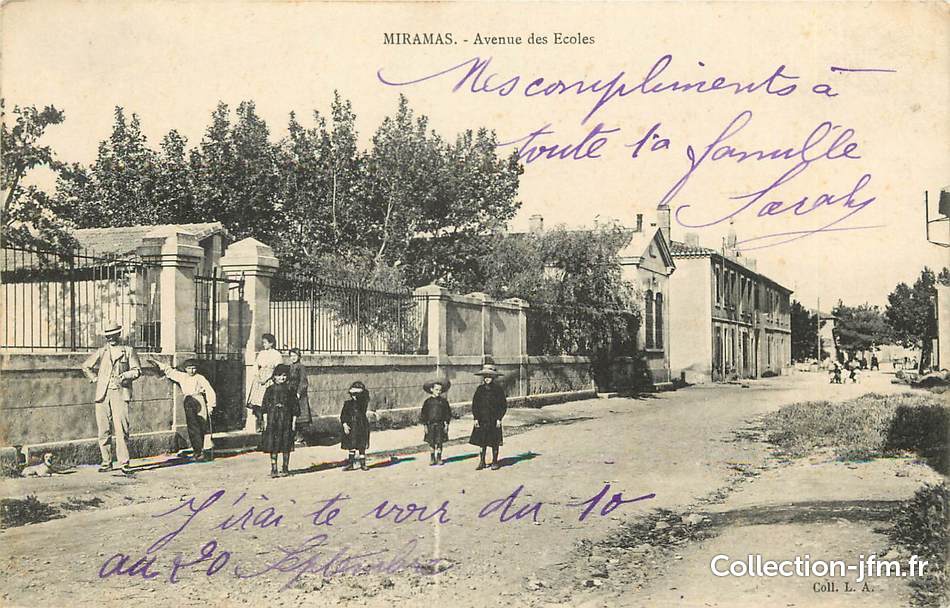 MIRAMAS. - Avenue des Ecoles
Mes compliments à
toute la famille
Sarah
J'irai te voir du 10
au 20 Septembre
Collection-jfm.fr
Coll. L. A.